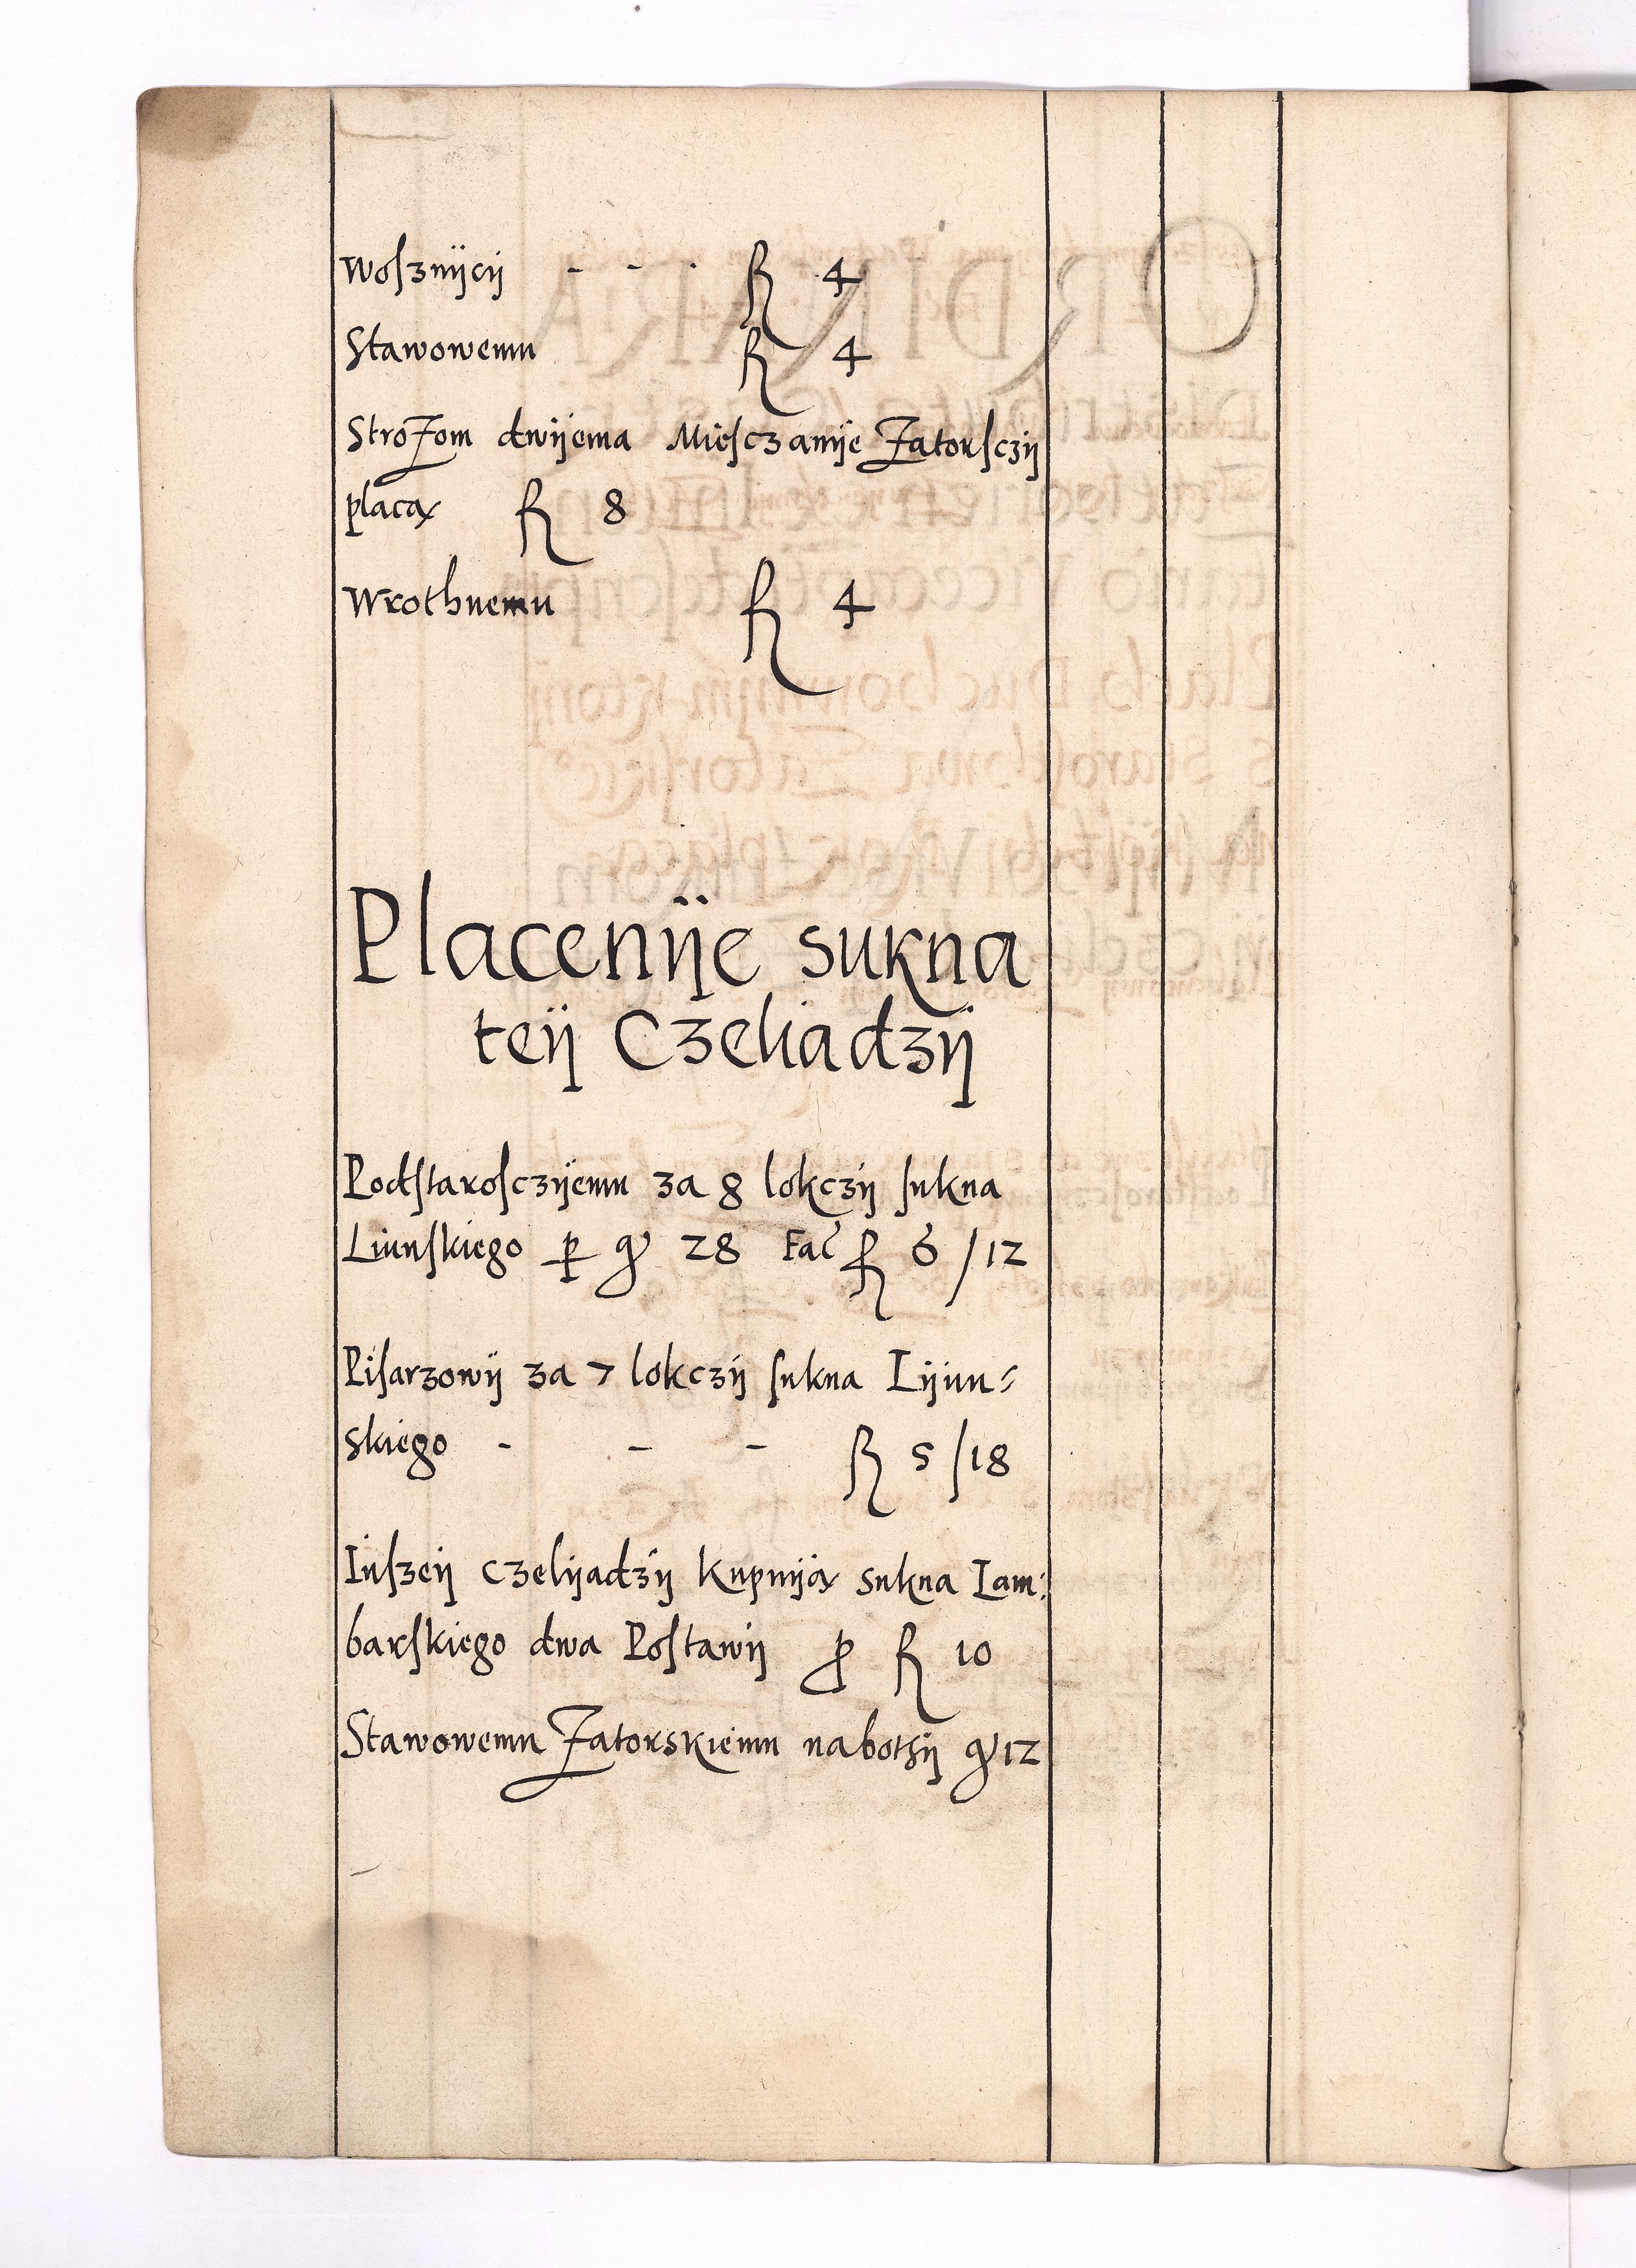 Woſznÿcÿ - - . fl 4
Stawowemu fl 4
Strożom dwÿema Mieſczanÿe Zatorſczÿ
placą fl 8
Wrothnemu fl 4
Placenÿe sukna
teÿ Czeliadzÿ
Podſtaroſczÿemu za 8 lokczÿ ſukna
Liunſkiego per gr 28 Fac fl 6 / 12
Piſarzowÿ za 7 lokczÿ ſukna Lÿun⸗
skiego - - - fl 5 / 18
Inſzeÿ Czelÿadzÿ kupuÿą sukna Lam:
barſkiego dwa Poſtawÿ pro fl 10
Stawowemu Zatorskiemu na bothÿ gr 12